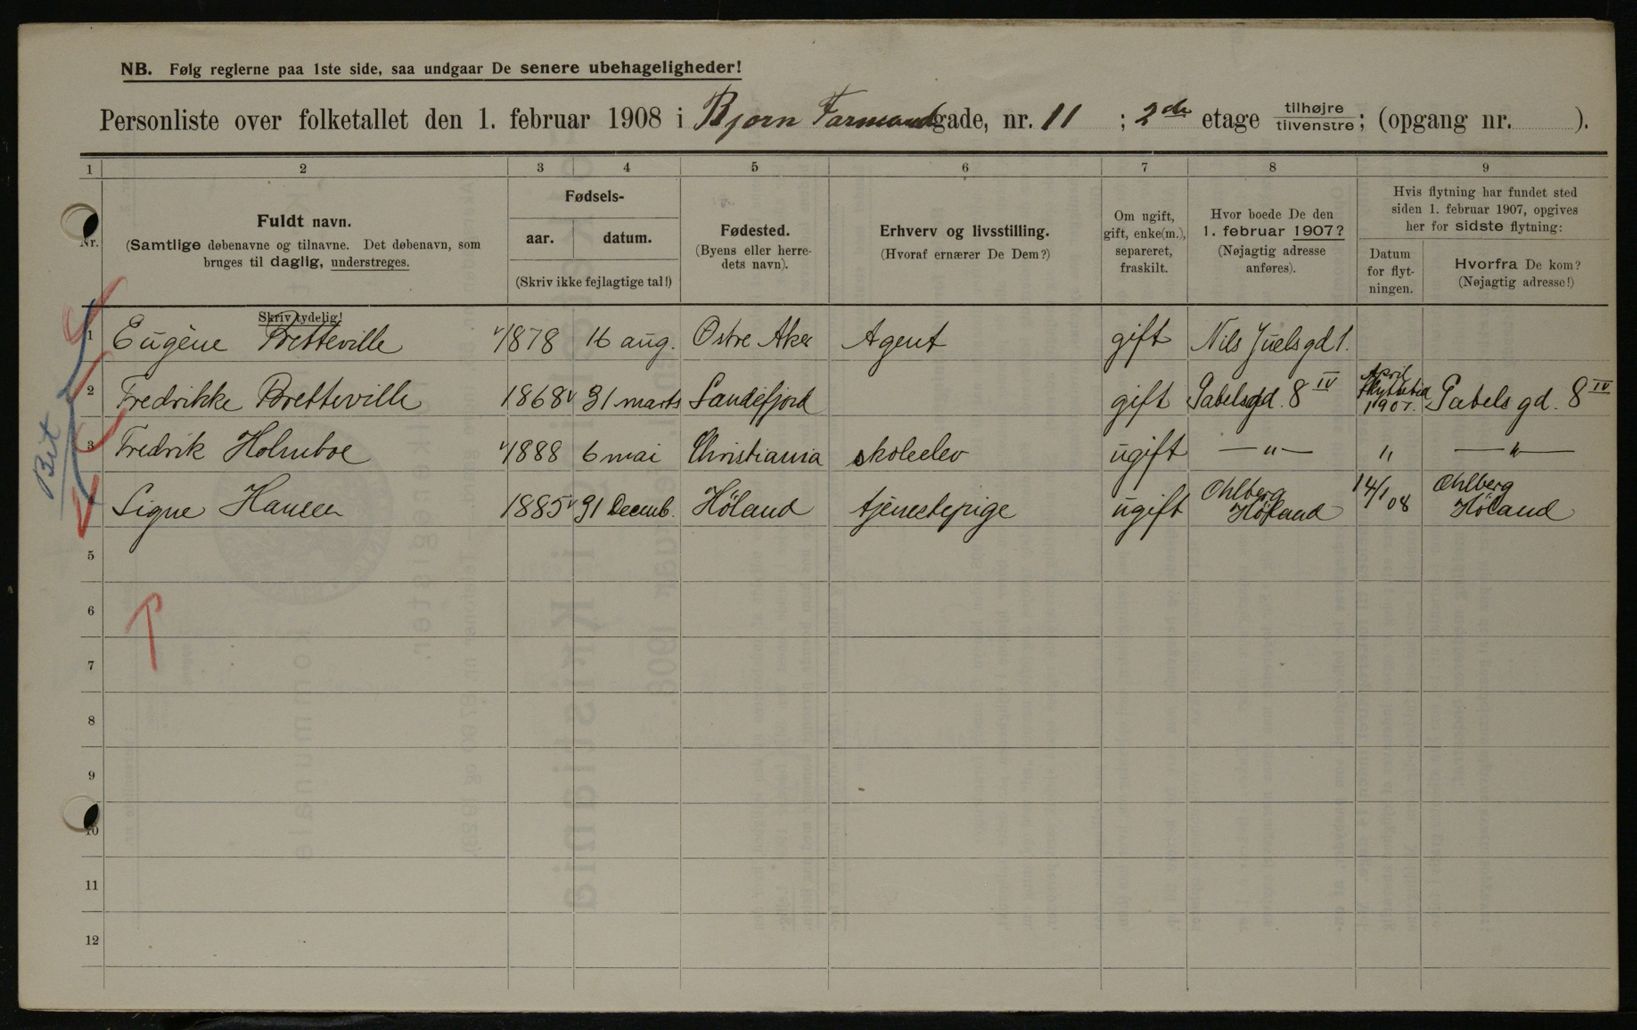 NB. Følg reglerne paa 1ste side, saa undgaar De senere ubehageligheder!
Personliste over folketallet den 1. februar 1908 i Bjørn Farmandgade, nr. 11 ; 2de etage tilhøjre tilvenstre; (opgang nr. ).
1 2 3 4 5 6 7 8 9
Nr.
Fuldt navn.
(Samtlige døbenavne og tilnavne. Det døbenavn, som
bruges til daglig, understreges.
Fødsels-
aar. datum.
(Skriv ikke fejlagtige tal!)
Fødested.
(Byens eller herre-
dets navn).
Erhverv og livsstilling.
(Hvoraf ernærer De Dem?)
Om ugift,
gift, enke(m.),
separeret,
fraskilt.
Hvor boede De den
1. februar 1907?
(Nøjagtig adresse
anføres).
Hvis flytning har fundet sted
siden 1. februar 1907, opgives
her for sidste flytning:
Datum
for flyt-
ningen.
Hvorfra De kom?
(Nøjagtig adresse!)
Skriv tydelig!
1 Eugène Bretteville 1878 16 aug. Østre Aker Agent gift Nils Juelsgd 1.
2 Fredrikke Bretteville 1868 31 marts Sandefjord gift Gabelsgd. 8 IV April 1907. Gabels gd. 8 IV
3 Fredrik Holmboe 1888 6 mai Christiania skoleelev ugift — " — " — " —
4 Signe Hansen 1885 31 Decemb. Høland tjenestepige ugift Ohlberg Høland 14/1 08 Ohlberg Høland
5
6
7
8
9
10
11
12